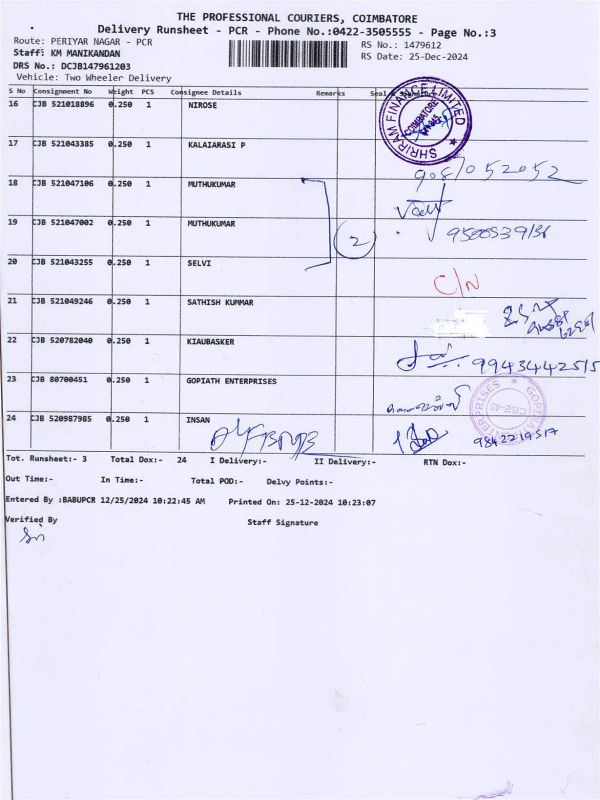 THE PROFESSIONAL COURIERS, COIMBATORE
Delivery Runsheet - PCR - Phone No.:0422-3505555 - Page No.:3
Route: PERIYAR NAGAR - PCR
RS No.: 1479612
Staff: KM MANIKANDAN
RS Date: 25-Dec-2024
DRS No.: DCJB147961203
Vehicle: Two Wheeler Delivery
S No Consignment No Weight PCS Consignee Details Remarks
16 CJB 521018896 0.250 1 NIROSE
SHRIRAM FINANCE LIMITED
COIMBATORE
17 CJB 521043385 0.250 1 KALAIARASI P
9087052052
18 CJB 521047106 0.250 1 MUTHUKUMAR
19 CJB 521047002 0.250 1 MUTHUKUMAR
2
20 CJB 521043255 0.250 1 SELVI
C/N
21 CJB 521049246 0.250 1 SATHISH KUMMAR
22 CJB 520782040 0.250 1 KIAUBASKER
9943442515
23 CJB 80700451 0.250 1 GOPIATH ENTERPRISES
CBE-45
24 CJB 520987985 0.250 1 INSAN
9842219517
Tot. Runsheet:- 3 Total Dox:- 24 I Delivery:- II Delivery:- RTN Dox:-
Out Time:- In Time:- Total POD:- Delvy Points:-
Entered By :BABUPCR 12/25/2024 10:22:45 AM Printed On: 25-12-2024 10:23:07
Verified By Staff Signature